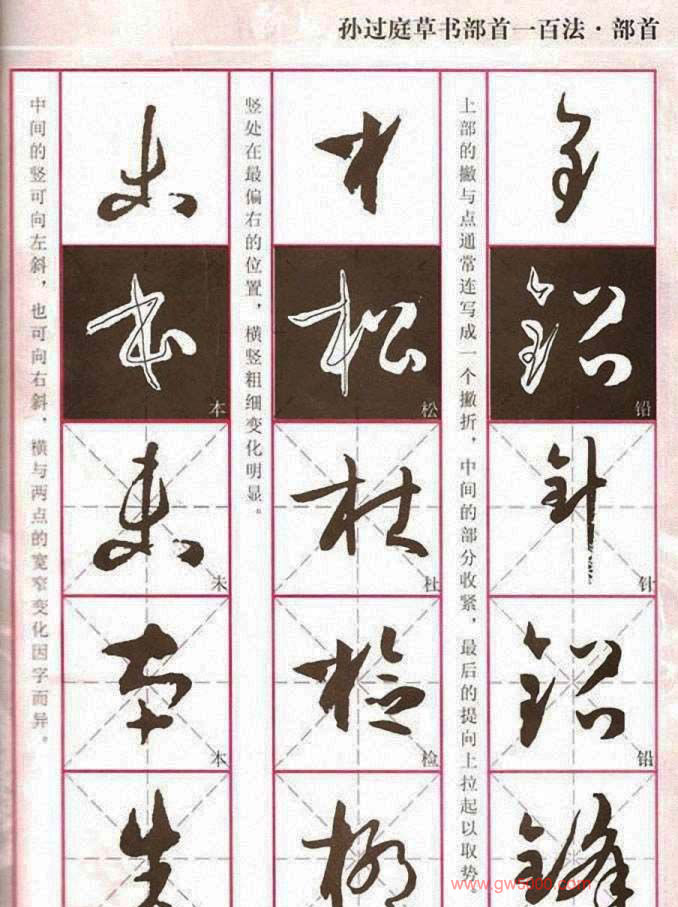 孙过庭草书部首一百法·部首
上部的撇与点通常连写成一个撇折，中间的部分收紧，最后的提向上拉起以取势。
铅
针
铅
竖处在最偏右的位置，横竖粗细变化明显。
松
杜
检
中间的竖可向左斜，也可向右斜，横与两点的宽窄变化因字而异。
本
未
本
www.gw5000.com